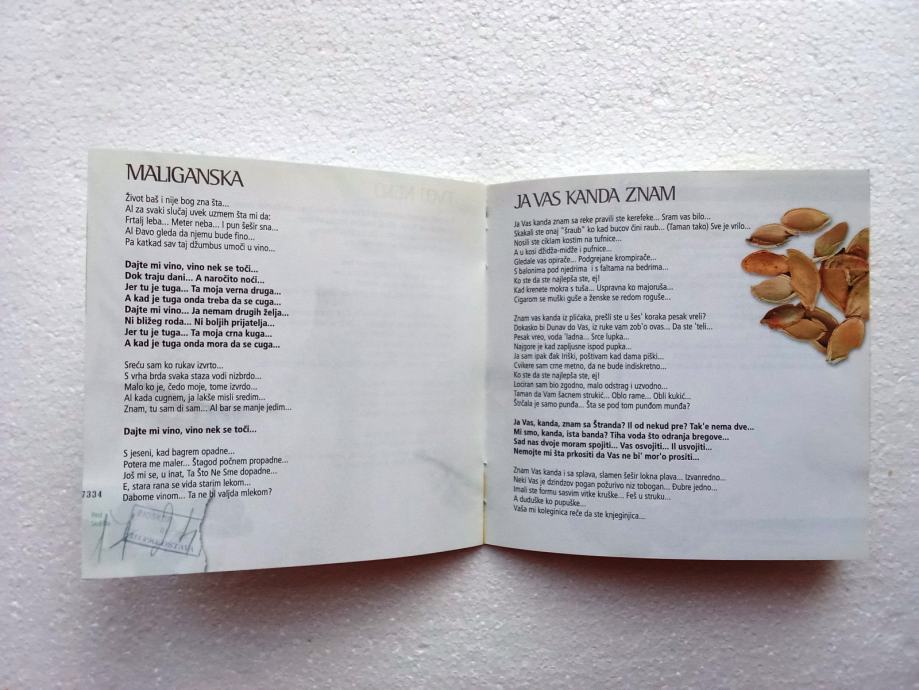 MALIGANSKA
Život baš i nije bog zna šta...
Al za svaki slučaj uvek uzmem šta mi da:
Frtalj leba... Meter neba... I pun šešir sna...
Al Đavo gleda da njemu bude fino...
Pa katkad sav taj džumbus umoči u vino...
Dajte mi vino, vino nek se toči...
Dok traju dani... A naročito noći...
Jer tu je tuga... Ta moja verna druga...
A kad je tuga onda treba da se cuga...
Dajte mi vino... Ja nemam drugih želja...
Ni bližeg roda... Ni boljih prijatelja...
Jer tu je tuga... Ta moja crna kuga...
A kad je tuga onda mora da se cuga...
Sreću sam ko rukav izvrto...
S vrha brda svaka staza vodi nizbrdo...
Malo ko je, čedo moje, tome izvrdo...
Al kada cugnem, ja lakše misli sredim...
Znam, tu sam di sam... Al bar se manje jedim...
Dajte mi vino, vino nek se toči...
S jeseni, kad bagrem opadne...
Potera me maler... Štagod počnem propadne...
Još mi se, u inat, Ta Što Ne Sme dopadne...
E, stara rana se vida starim lekom...
Dabome vinom... Ta ne bi valjda mlekom?
7334
JA VAS KANDA ZNAM
Ja Vas kanda znam sa reke pravili ste kerefeke... Sram vas bilo...
Skakali ste onaj "šraub" ko kad bucov čini raub... (Taman tako) Sve je vrilo...
Nosili ste ciklam kostim na tufnice...
A u kosi džidža-midže i pufnice...
Gledale vas opirače... Podgrejane krompirače...
S balonima pod njedrima i s faltama na bedrima...
Ko ste da ste najlepša ste, ej!
Kad krenete mokra s tuša... Uspravna ko majoruša...
Cigarom se muški guše a ženske se redom roguše...
Znam vas kanda iz plićaka, prešli ste u šes' koraka pesak vreli?
Dokasko bi Dunav do Vas, iz ruke vam zob'o ovas... Da ste 'teli...
Pesak vreo, voda 'ladna... Srce lupka...
Najgore je kad zapljusne ispod pupka...
Ja sam ipak đak Iriški, poštivam kad dama piški...
Cvikere sam crne metno, da ne bude indiskretno...
Ko ste da ste najlepša ste, ej!
Lociran sam bio zgodno, malo odstrag i uzvodno...
Taman da Vam šacnem strukić... Oblo rame... Obli kukić...
Štrčala je samo punđa... Šta se pod tom punđom munđa?
Ja Vas, kanda, znam sa Štranda? Il od nekud pre? Tak'e nema dve...
Mi smo, kanda, ista banda? Tiha voda što odranja bregove...
Sad nas dvoje moram spojiti... Vas osvojiti... Il usvojiti...
Nemojte mi šta prkositi da Vas ne bi' mor'o prositi...
Znam Vas kanda i sa splava, slamen šešir lokna plava... Izvanredno...
Neki Vas je dzindzov pogan požurivo niz tobogan... Đubre jedno...
Imali ste formu sasvim vitke kruške... Feš u struku...
A duduške ko pupuške...
Vaša mi koleginica reče da ste knjeginjica...